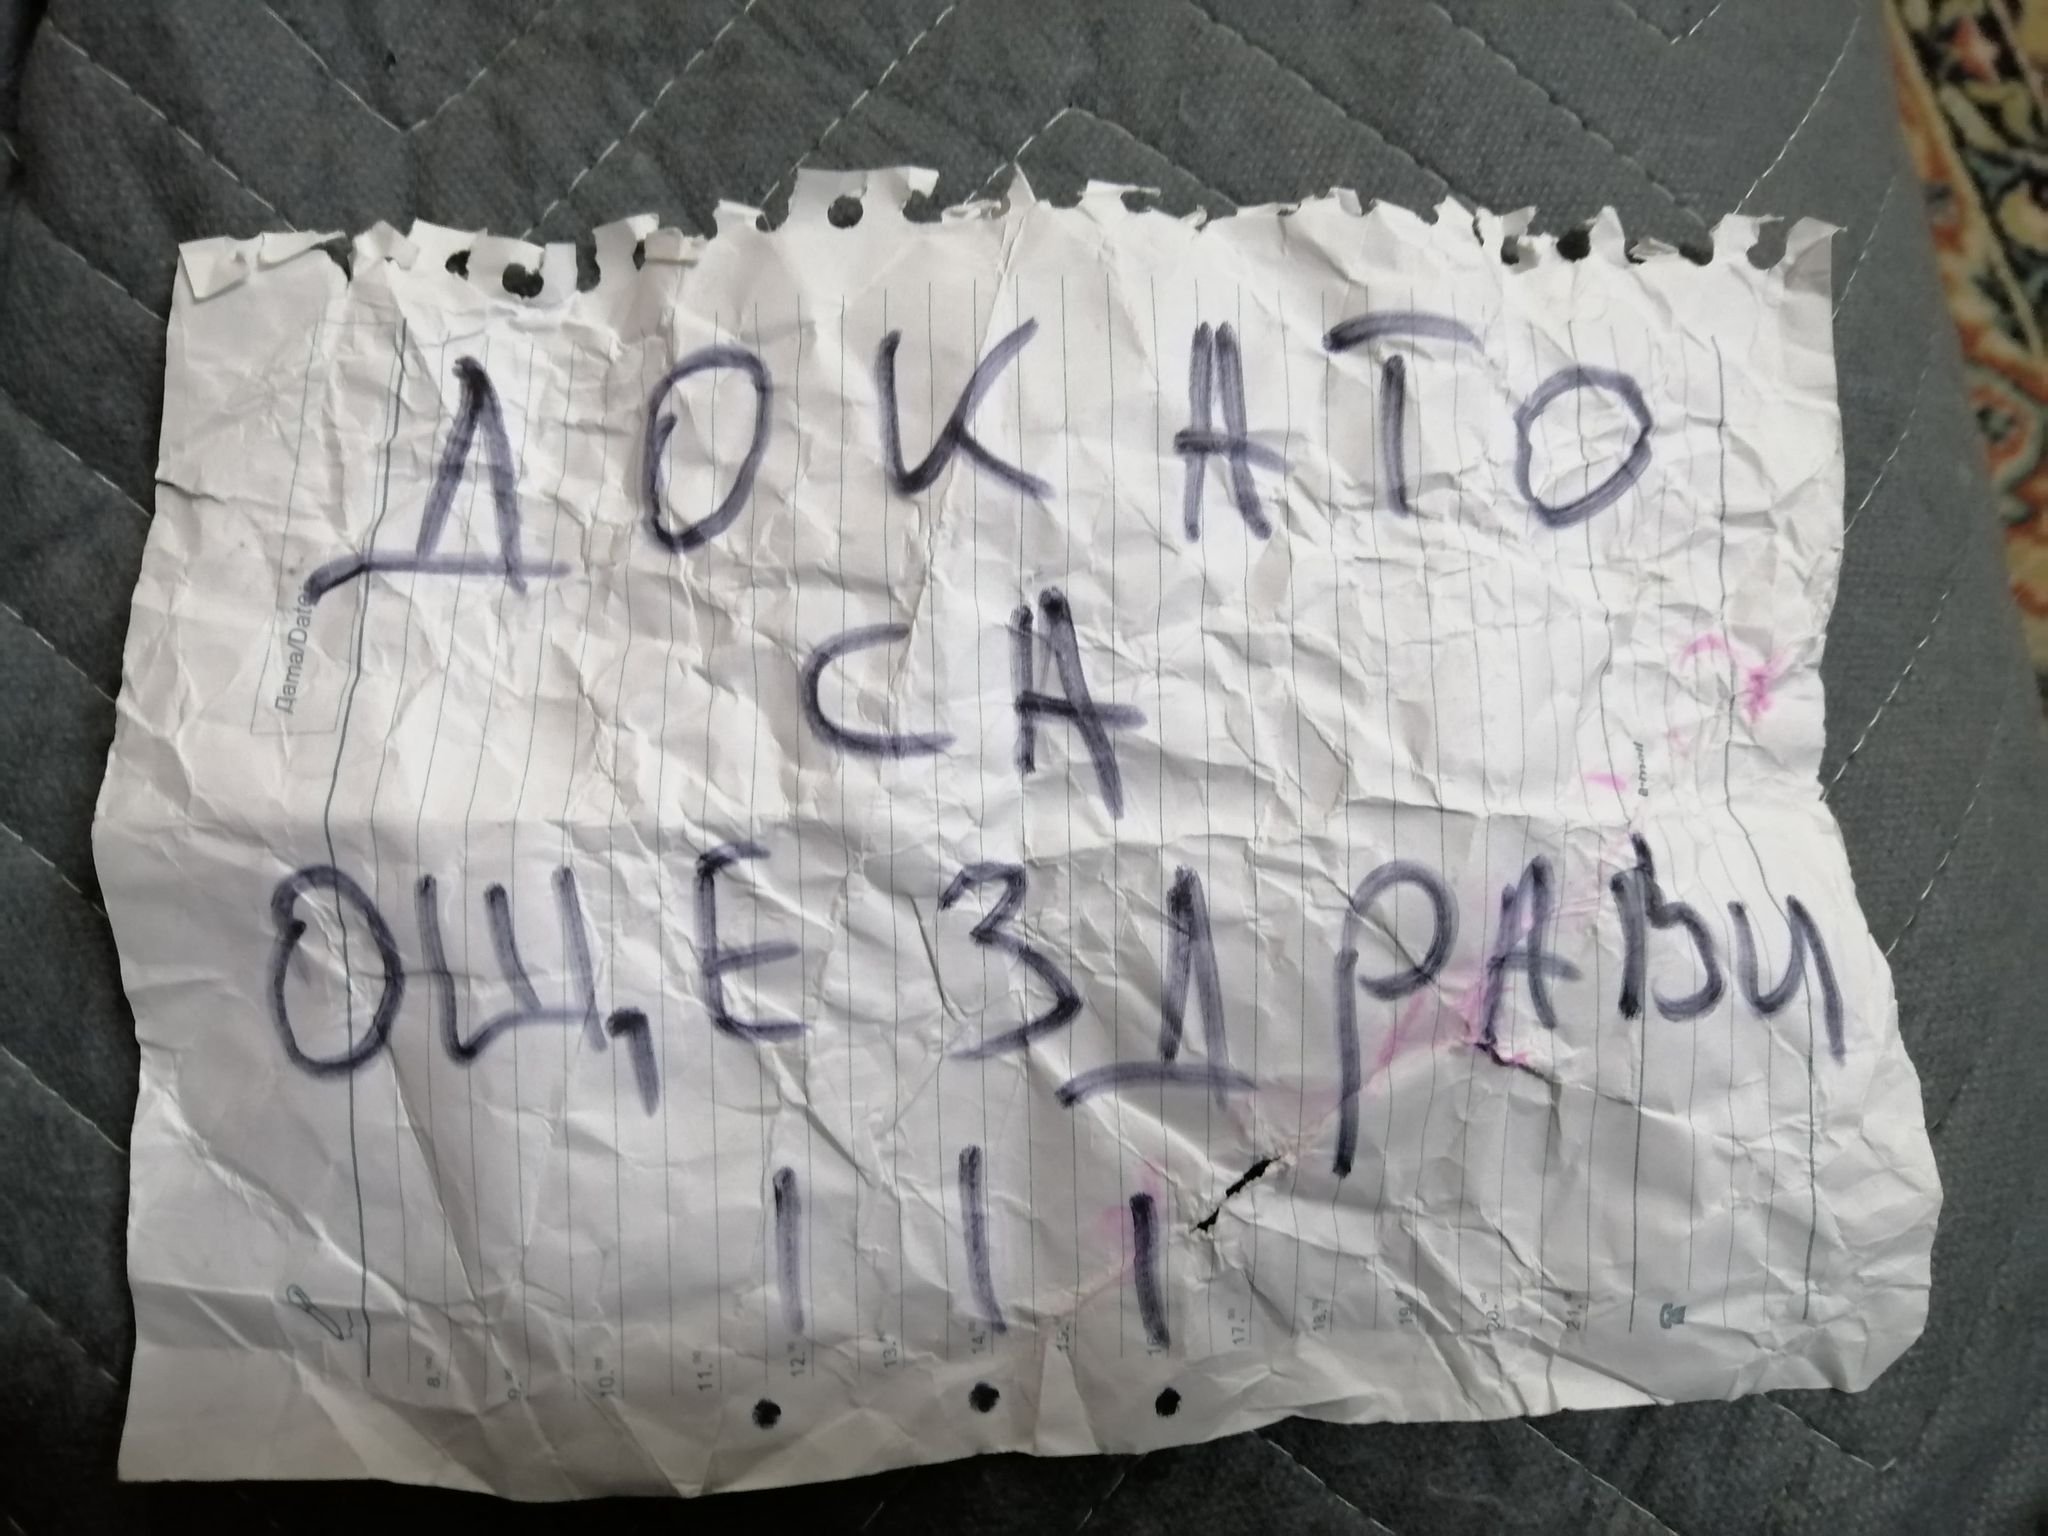 ДОКАТО
СА
ОЩЕ ЗДРАВИ
!!!
Дата/Date:
e-mail
8.00
9.00
10.00
11.00
12.00
13.00
14.00
15.00
17.00
18.00
19.00
20.00
21.00